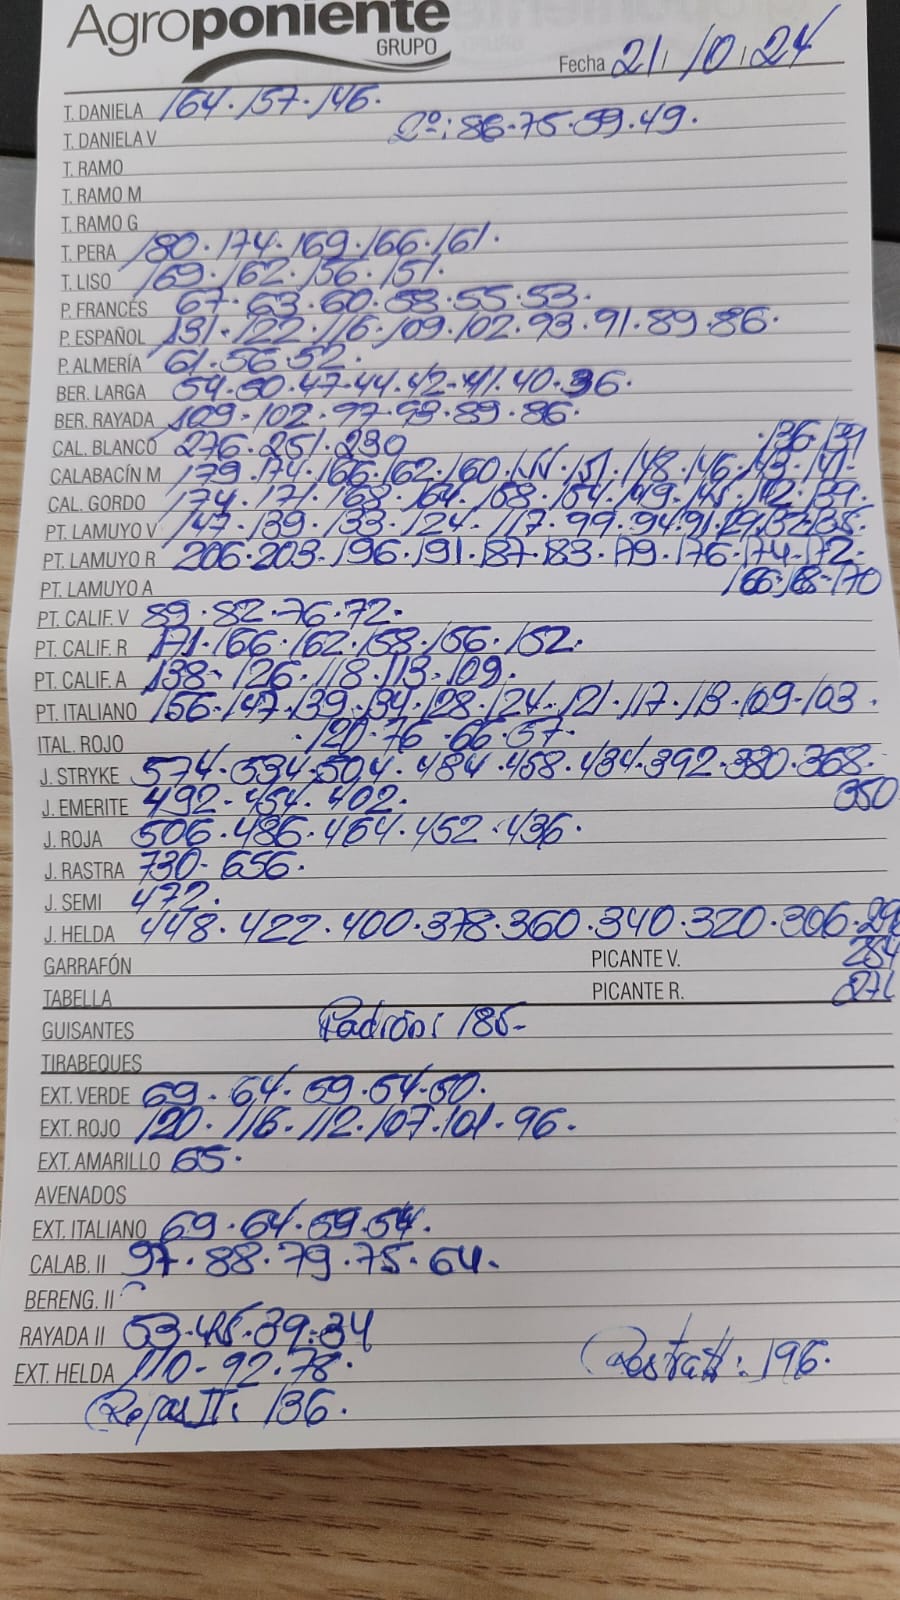 Agroponiente
GRUPO
Fecha 21/10/24
T. DANIELA 164·157·146.
T. DANIELA V 2º: 86·75·59·49.
T. RAMO
T. RAMO M
T. RAMO G
T. PERA 180·174·169·166·161.
T. LISO 169·162·156·151.
P. FRANCÉS 67·63·60·58·55·53.
P. ESPAÑOL 131·122·116·109·102·93·91·89·86.
P. ALMERÍA 61·56·52.
BER. LARGA 54·50·47·44·42·41·40·36.
BER. RAYADA 109·102·97·93·89·86.
CAL. BLANCO 276·251·230
·136·131
CALABACÍN M 179·174·166·162·160·155·151·148·146·143·141-
CAL. GORDO 174·171·168·164·158·154·149·145·142·139.
PT. LAMUYO V 147·139·133·124·117·99·94·91
PT. LAMUYO R 206·203·196·191·187·183·179·176·174·172-
PT. LAMUYO A 166·168-170
PT. CALIF. V 89·82·76·72.
PT. CALIF. R 171·166·162·158·156·152.
PT. CALIF. A 138-126·118·113·109.
PT. ITALIANO 156·147·139·134·128·124·121·117·113·109-103.
ITAL. ROJO ·120·76·66·57.
J. STRYKE 574·534·504·484·458·434·392·380·368.
350
J. EMERITE 492-454·402.
J. ROJA 506·486·464·452·436.
J. RASTRA 730-656.
J. SEMI 472.
J. HELDA 448·422·400·378·360·340·320·306
GARRAFÓN PICANTE V. 284
TABELLA PICANTE R.
GUISANTES Padrón: 185-
TIRABEQUES
EXT. VERDE 69·64·59·54-50.
EXT. ROJO 120·116·112·107·101·96.
EXT. AMARILLO 65.
AVENADOS
EXT. ITALIANO 69·64·59·54.
CALAB. II 97·88·79·75·64.
BERENG. II
RAYADA II 53·45·39·34
EXT. HELDA 110-92·78. Rastra II: 196.
Rojas II: 136.